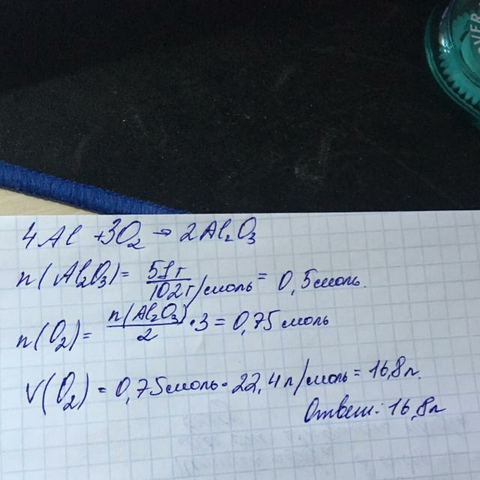 4Al + 3O₂ = 2Al₂O₃
n(Al₂O₃) = 51г / 102г/моль = 0,5моль.
n(O₂) = n(Al₂O₃) / 2 · 3 = 0,75 моль
V(O₂) = 0,75моль · 22,4л/моль = 16,8л.
Ответ: 16,8л